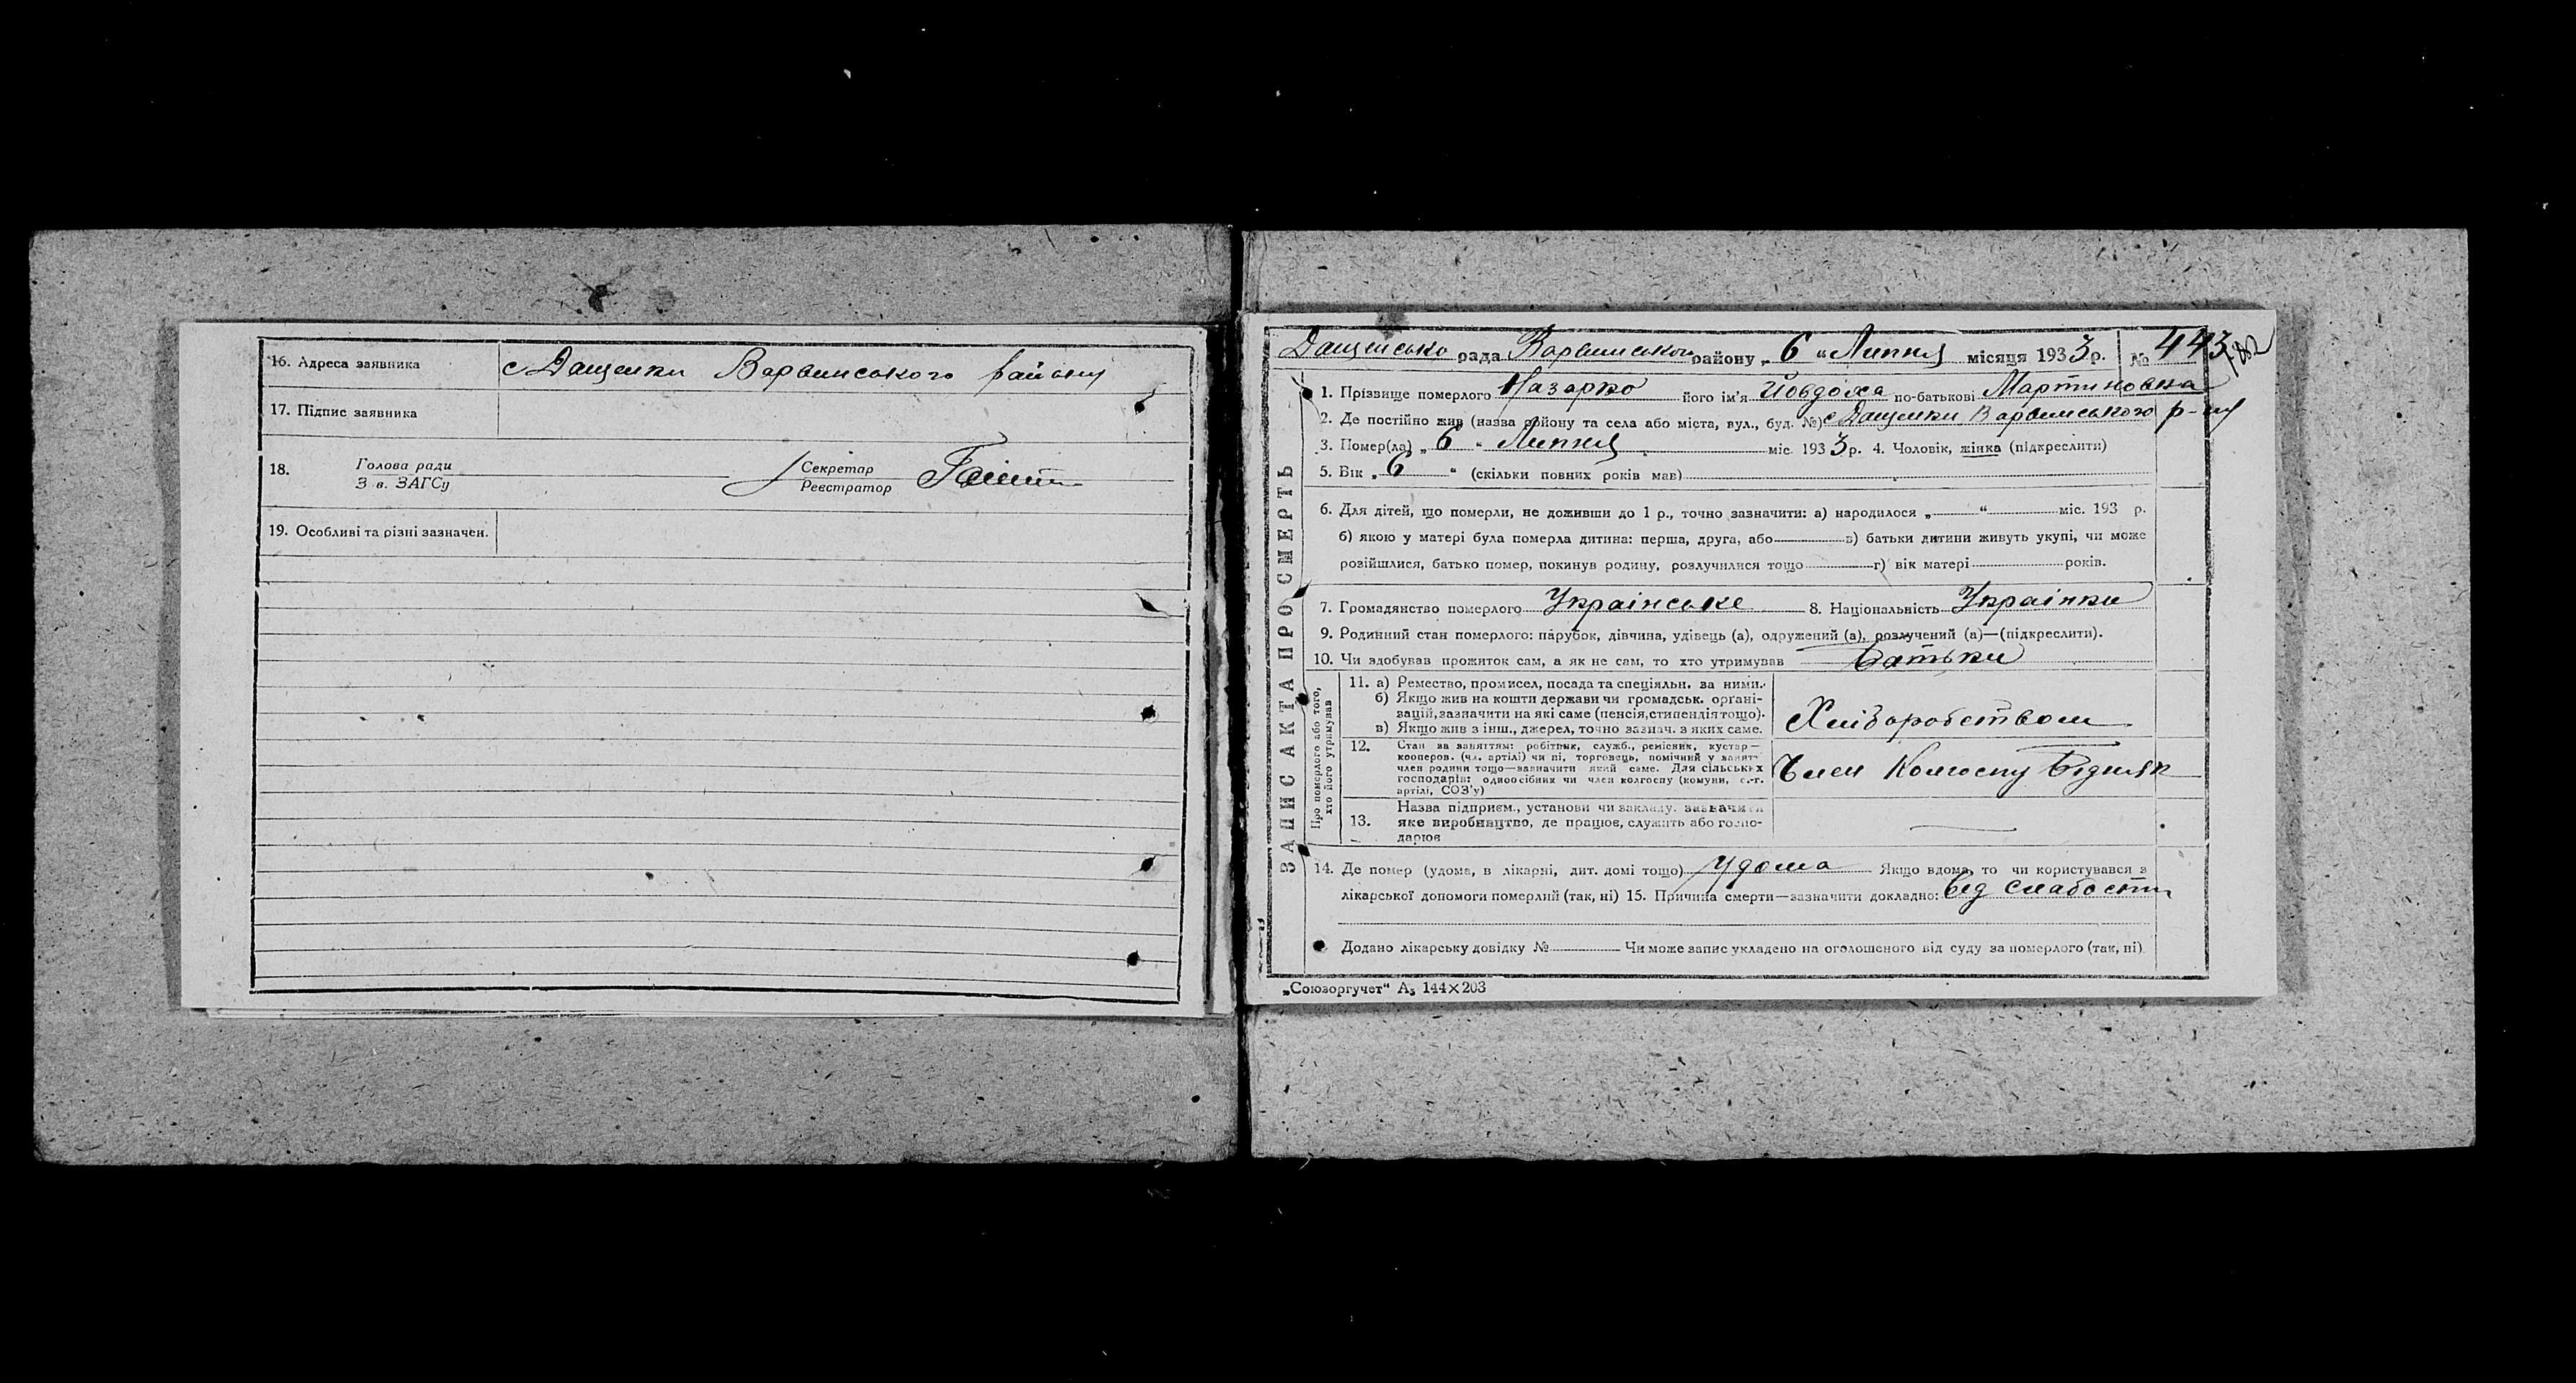 16. Адреса заявника с Дащенки Варвинського району
17. Підпис заявника
18. Голова ради Секретар
З в. ЗАГСу Реєстратор
19. Особливі та різні зазначен.
Дащенсько рада Варвинського району „ 6 “ Липня місяця 1933 р. № 443
182
ЗАПИС АКТА ПРО СМЕРТЬ
1. Прізвище померлого Назарко його ім'я Йовдоха по-батькові Мартиновна
2. Де постійно жив (назва району та села або міста, вул., буд. №) с Дащенки Варвинського р-ну
3. Помер(ла) „ 6 “ Липня міс. 1933 р. 4. Чоловік, жінка (підкреслити)
5. Вік „ 6 “ (скільки повних років мав)
6. Для дітей, що померли, не доживши до 1 р., точно зазначити: а) народилося „ “ міс. 193 р.
б) якою у матері була померла дитина: перша, друга, або в) батьки дитини живуть укупі, чи може
розійшлися, батько помер, покинув родину, розлучилися тощо г) вік матері років.
7. Громадянство померлого Українське 8. Національність Українки
9. Родинний стан померлого: парубок, дівчина, удівець (а), одружений (а), розлучений (а)—(підкреслити).
10. Чи здобував прожиток сам, а як не сам, то хто утримував Батьки
Про померлого або того,
хто його утримував
11. а) Ремество, промисел, посада та спеціяльн. за ними.
б) Якщо жив на кошти держави чи громадськ. органі-
зацій, зазначити на які саме (пенсія, стипендія тощо).
в) Якщо жив з інш., джерел, точно зазнач. з яких саме.
Хліборобством
12. Стан за заняттям: робітник, служб., ремісник, кустар—
кооперов. (чл. артілі) чи ні, торговець, помічний у занят-
член родини тощо—зазначити який саме. Для сільських
господарів: одноосібник чи член колгоспу (комуни, с.-г.
артілі, СОЗ'у)
Член Колгоспу Бідняк
13. Назва підприєм., установи чи закладу. зазначити
яке виробництво, де працює, служить або госпо-
дарює
14. Де помер (удома, в лікарні, дит. домі тощо) Удома Якщо вдома, то чи користувався з
лікарської допомоги померлий (так, ні) 15. Причина смерти—зазначити докладно: Від слабости
Додано лікарську довідку № Чи може запис укладено на оголошеного від суду за померлого (так, ні)
„Союзоргучет“ А₅ 144×203